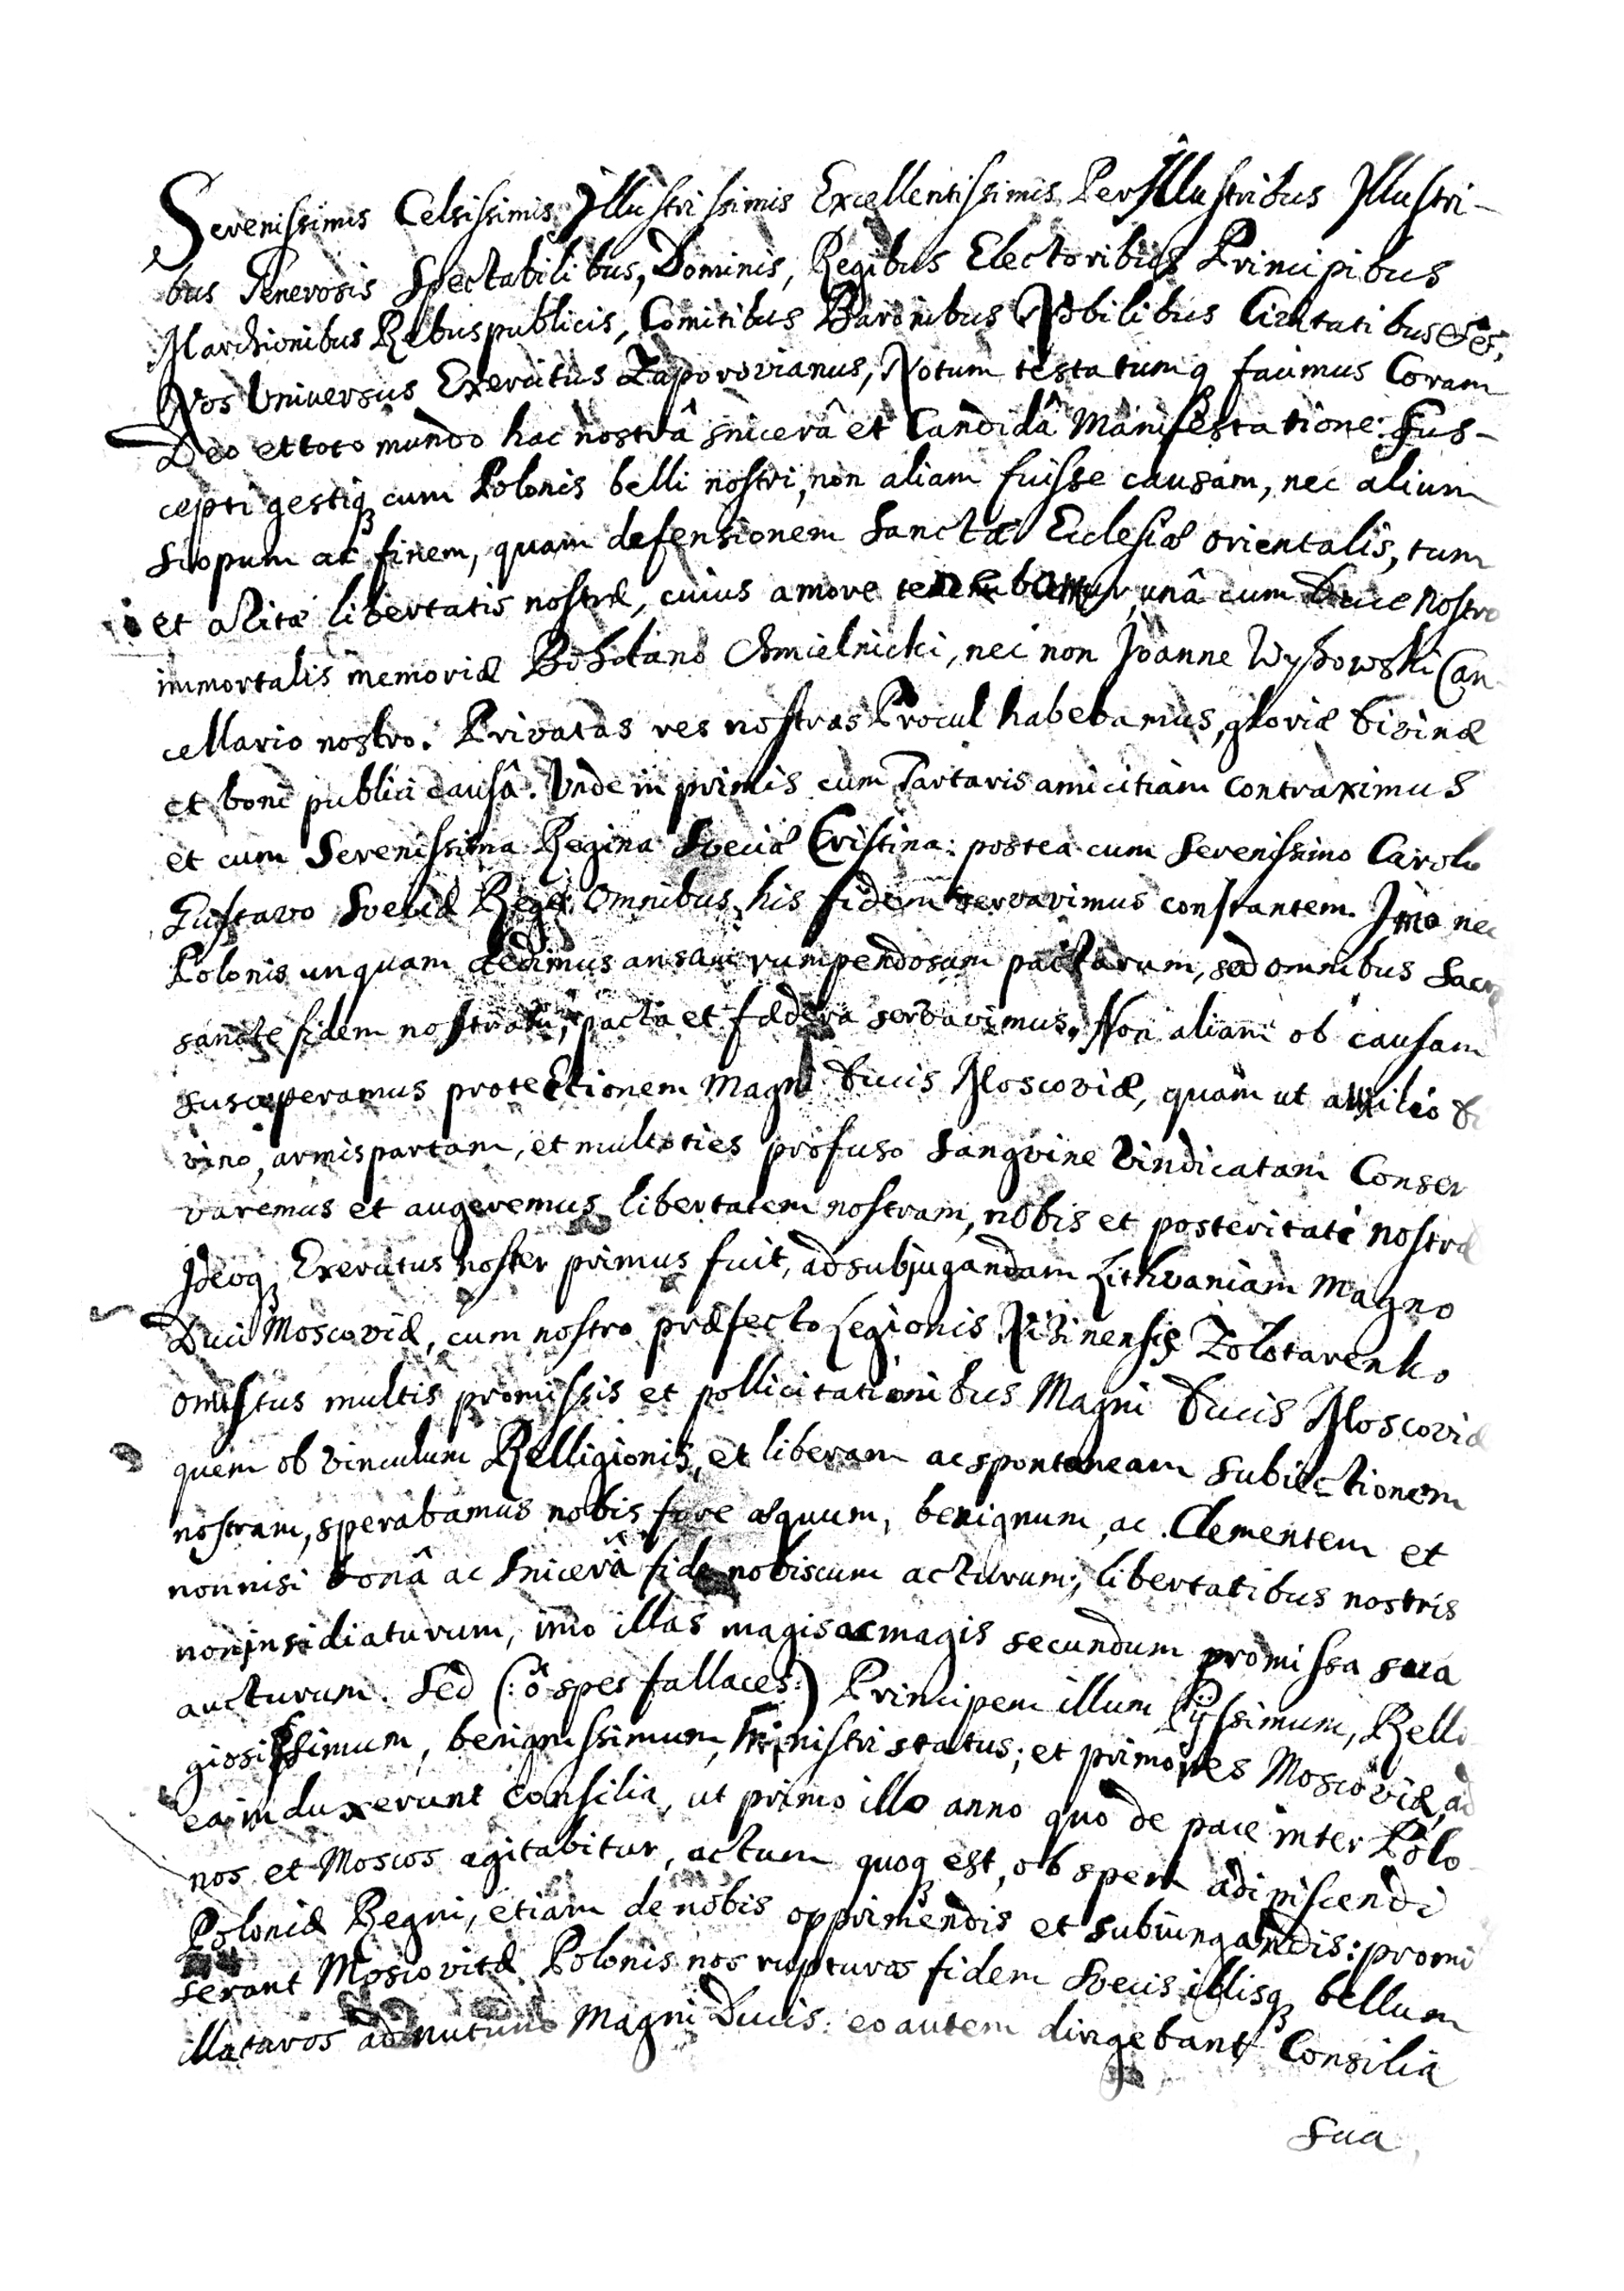 Serenissimis Celsissimis Illustrissimis Excellentissimis Perillustribus Illustri-
bus Generosis Spectabilibus, Dominis, Regibus Electoribus Principibus
Marchionibus Rebuspublicis, Comitibus Baronibus Nobilibus Civitatibus &c,
Nos Universus Exercitus Zaporovianus, Notum testatumq facimus Coram
Deo et toto mundo hac nostrâ sincerâ et Candidâ Manifestatione: Sus-
cepti gestiq cum Polonis belli nostri, non aliam fuisse causam, nec alium
scopum ac finem, quam defensionem Sanctæ Ecclesiæ orientalis, tum
et avitæ libertatis nostræ, cuius amore tenebamur, unâ cum Duce Nostro
immortalis memoriæ Bohdano Chmielnicki, nec non Joanne Wyhowski Can
cellario nostro. Privatas res nostras Procul habebamus, gloriæ divinæ
et boni publici causâ. Unde in primis cum Tartaris amicitiam contraximus
et cum Serenissima Regina Sveciæ Cristina: postea cum Serenissimo Carolo
Gustavo Sveciæ Rege, Omnibus his fidem servavimus constantem. Imo nec
Polonis unquam dedimus ansam rumpendosam pactarum, sed omnibus Sacro
sancte fidem nostram, pacta et fædera servavimus. Non aliam ob causam
susceperamus protectionem Magni Ducis Moscoviæ, quam ut auxilio di
vino, armis partam, et multoties profuso Sangvine vindicatam Conser
varemus et augeremus libertatem nostram, nobis et posteritati nostræ
Ideoq Exercitus noster primus fuit, ad subjugandam Lithvaniam Magno
Duci Moscoviæ, cum nostro præfecto Legionis Nizinensis Zolotarenko
onustus multis promissis et pollicitationibus Magni Ducis Moscoviæ
quem ob vinculum Relligionis, et liberam ac spontaneam subiectionem
nostram, sperabamus nobis fore æquum, benignum, ac Clementem et
nonnisi bonâ ac sincerâ fide nobiscum acturum; libertatibus nostris
non insidiaturum, imo illas magis ac magis secundum promissa sua
aucturum. Sed (: ô spes fallaces :) Principem illum Pijssimum, Relli
giosissimum, benignissimum, Ministri status; et primores Moscoviæ, ad
ea induxerunt Consilia, ut primo illo anno quo de pace inter Polo
nos et Moscos agitabitur, actum quoq est, ob spem adipiscendi
Poloniæ Regni, etiam de nobis opprimendis et subiungandis: promi
serant Moscovitæ Polonis nos rupturos fidem Svecis illisq bellum
illaturos ad nutum Magni Ducis: eo autem dirigebant Consilia
sua